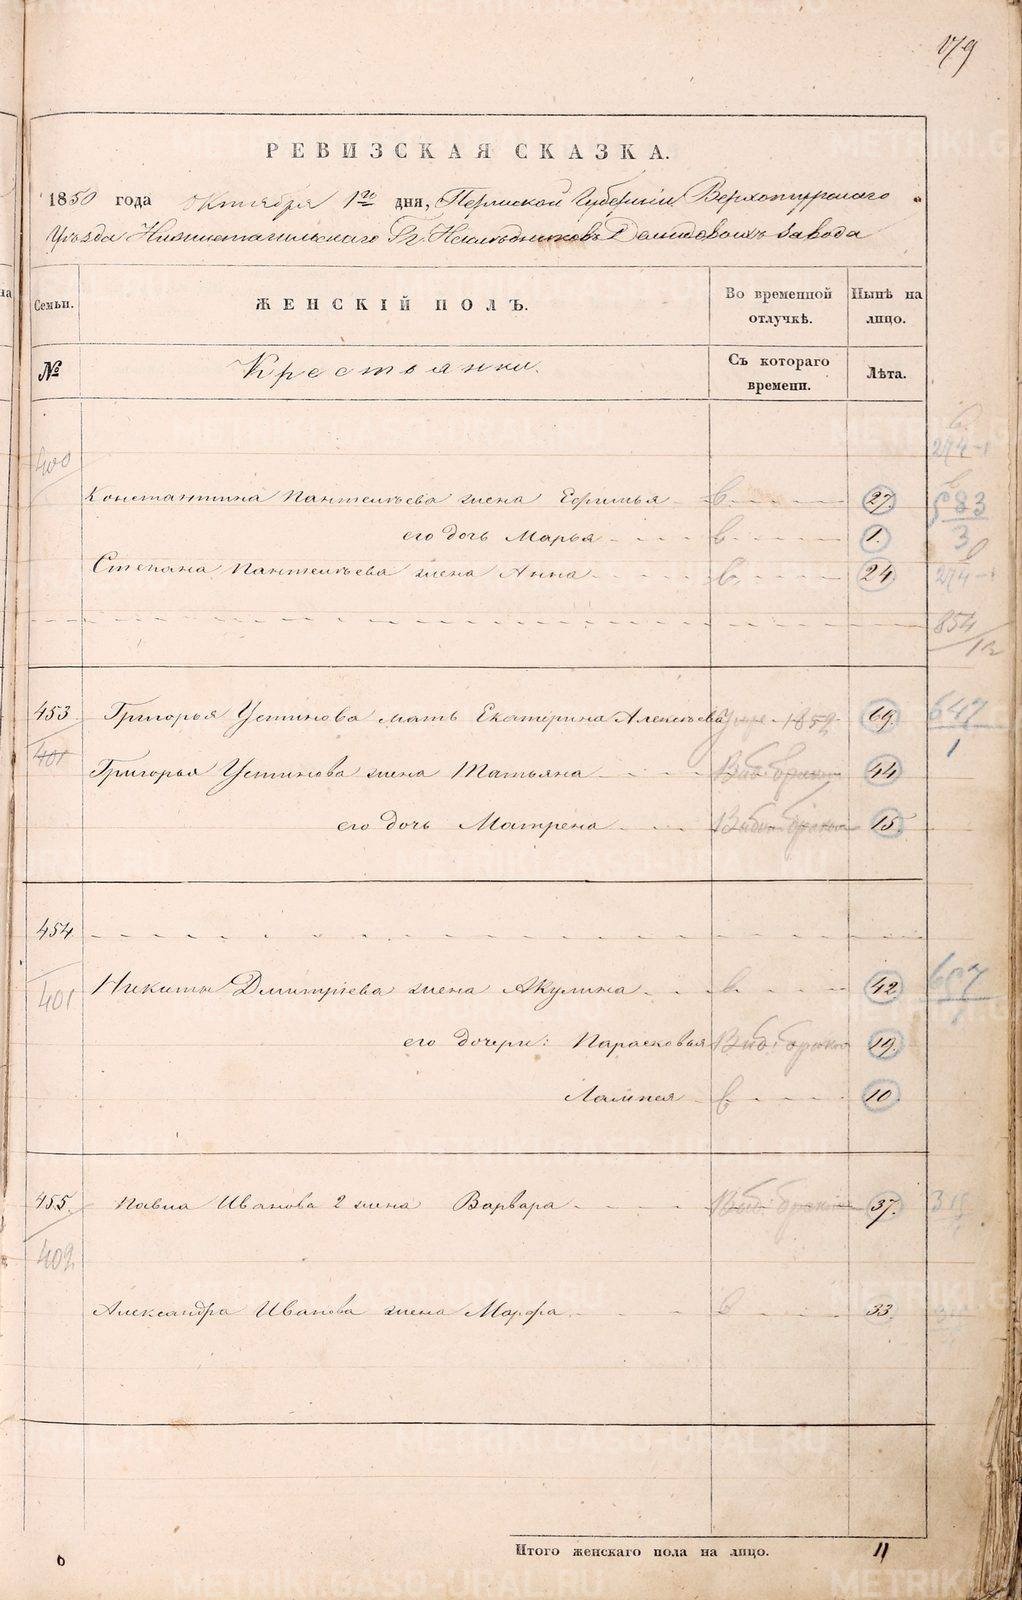 179
РЕВИЗСКАЯ СКАЗКА.
1850 года Октября 1го дня, Пермской Губерніи Верхотурскаго
Уѣзда Нижнетагильскаго Гг. Наслѣдниковъ Демидовыхъ Завода
Семьи. ЖЕНСКІЙ ПОЛЪ. Во временной отлучкѣ. Нынѣ на лицо.
№ Крестьянки. Съ котораго времени. Лѣта.
400
274-1
Константина Пантелѣева жена Ефимья в. 27.
583
3
его дочь Марья в. 1.
Степана Пантелѣева жена Анна в. 24
274-1
854
12
453 Григорья Устинова мать Екатерина Алексѣева Умре 1852 69. 647
1
401
Григорья Устинова жена Татьяна Выб. браком 44
его дочь Матрена Выб. браком 15.
454
401 Никиты Дмитріева жена Акулина в. 42. 607
1
его дочери: Парасковья Выб. браком 19.
Лампея в 10.
455. Павла Иванова 2 жена Варвара Выб. браком 37.
402
Александра Иванова жена Марфа в 33.
Итого женскаго пола на лицо. 11
METRIKI.GASO-URAL.RU